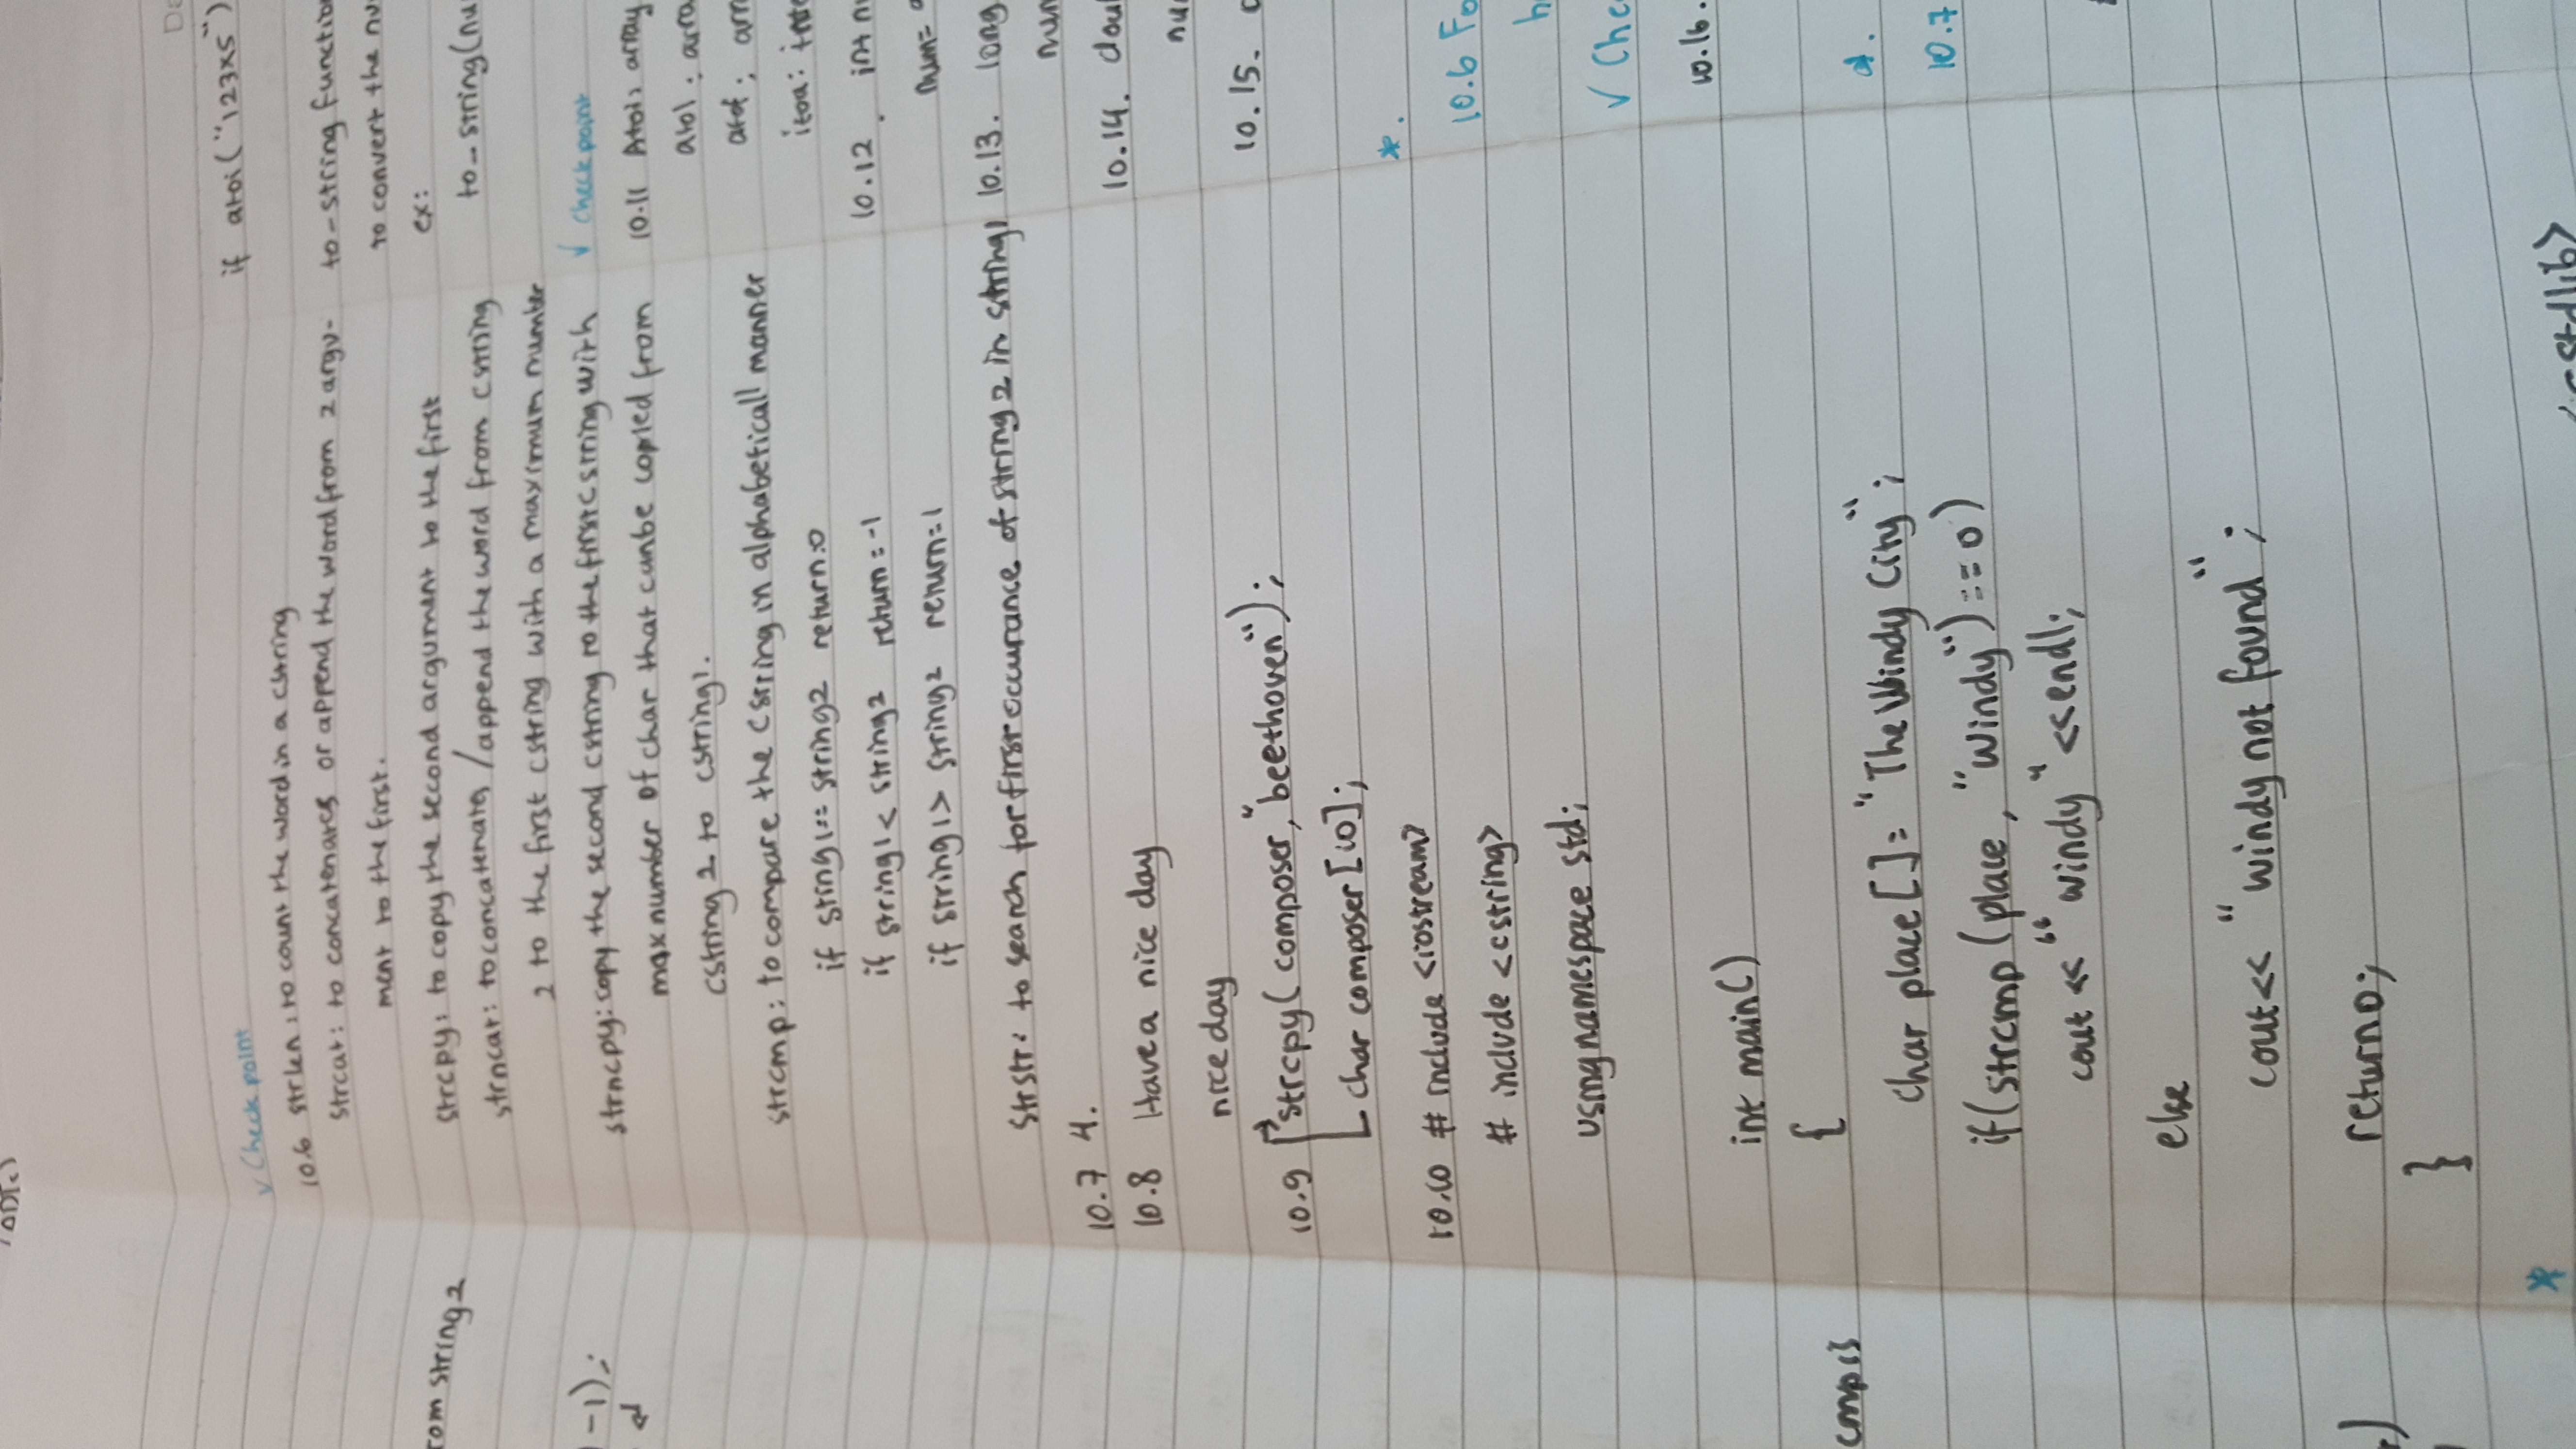 rom string 2
-1);
cmp is
✓ Check point
10.6 strlen : to count the word in a cstring
strcat : to concatenates or append the word from 2 argu-
ment to the first.
strcpy : to copy the second argument to the first
strncat : to concatenates / append the word from cstring
2 to the first cstring with a maximum number
strncpy : copy the second cstring to the first cstring with
max number of char that can be copied from
cstring 2 to cstring 1.
strcmp : to compare the cstring in alphabeticall manner
if string 1 == string 2 return : 0
if string 1 < string 2 return = -1
if string 1 > string 2 return = 1
strstr : to search for first occurance of string 2 in string 1
10.7 4.
10.8 Have a nice day
nice day
10.9 strcpy( composer, "beethoven");
char composer [10];
10.10 # include <iostream>
# include <cstring>
using namespace std;
int main()
{
char place [] = "The Windy City";
if(strcmp (place, "Windy") == 0)
cout << "windy" << endl;
else
cout << "windy not found";
return 0;
}
*
if atoi("123x5")
to-string functio
to convert the nu
ex:
to_string(nu
✓ Check point
10.11 Atoi : array
atol : arra
atof : arr
itoa : inte
10.12. int n
num=
10.13. long
num
10.14. dou
nu
10.15. c
*.
10.6 Fo
h
✓ Che
10.16.
d.
10.7
cstdlib>